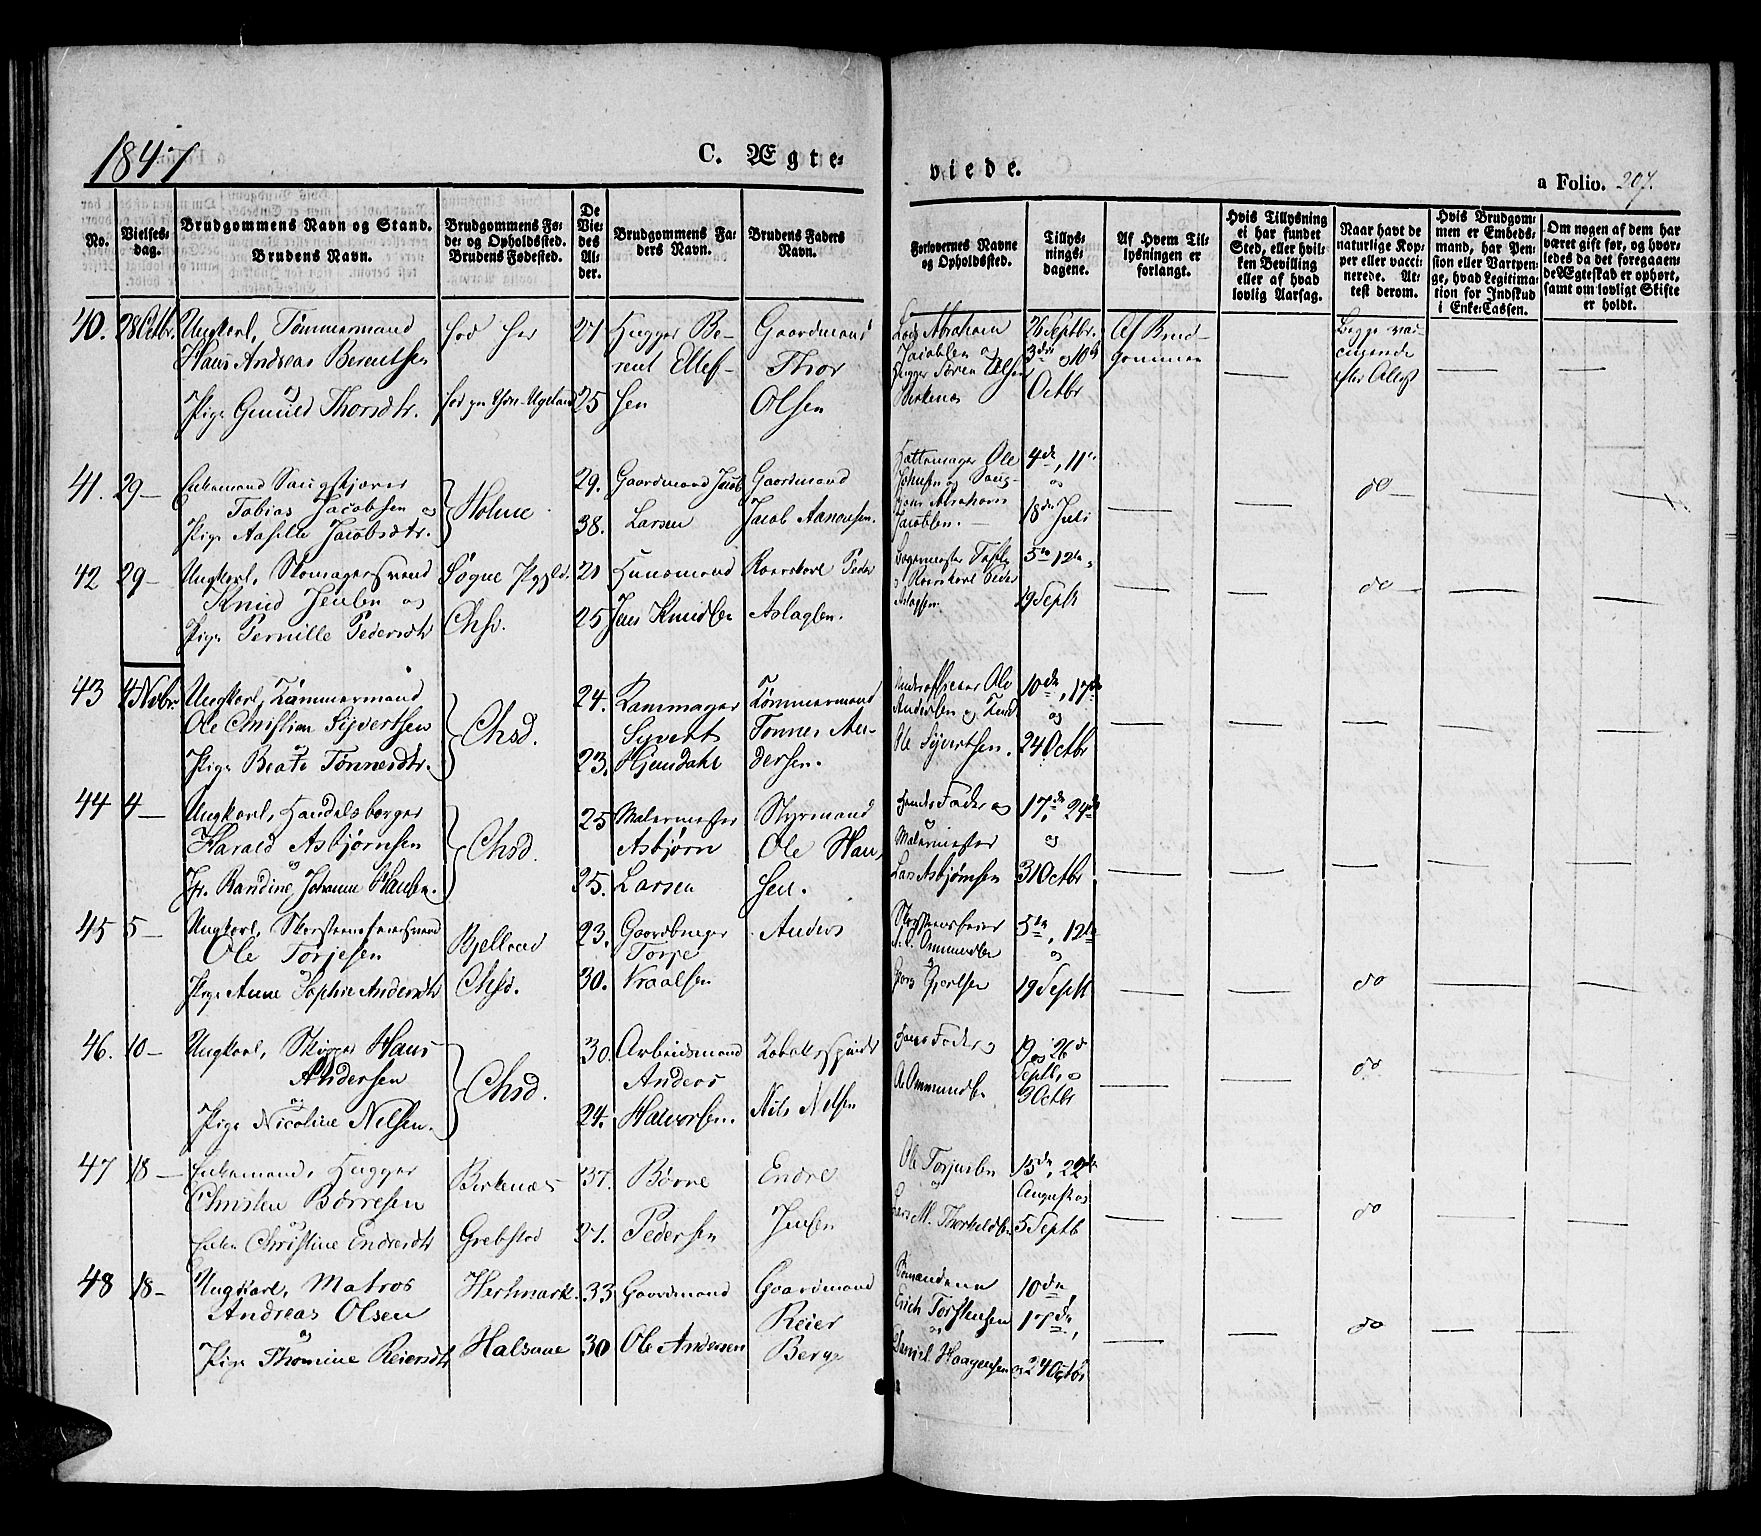 1847
C. Ægte-
viede.
a Folio. 207.
No.
Vielses-
dag.
Brudgommens Navn og Stand.
Brudens Navn.
Brudgommens Fø-
de- og Opholdssted.
Brudens Fødested.
De
Vie-
des
Al-
der.
Brudgommens Fa-
ders Navn.
Brudens Faders
Navn.
Forlovernes Navne
og Opholdssted.
Tillys-
nings-
dagene.
Af Hvem Til-
lysningen er
forlangt.
Hvis Tillysning
ei har fundet
Sted, eller hvil-
ken Bevilling
eller af hvad
lovlig Aarsag.
Naar havt de
naturlige Kop-
per eller vacci-
nerede. At-
test derom.
Hvis Brudgom-
men er Embeds-
mand, har Pen-
sion eller Vartpen-
ge, hvad Legitima-
tion for Indskud
i Enke-Cassen.
Om nogen af dem har
været gift før, og hvor-
ledes da det foregaaen-
de Ægteskab er ophørt,
samt om lovligt Skifte
er holdt.
40. 28 Octbr. Ungkarl, Tømmermand
Hans Andreas Berentsen
og
Pige Gunild Thorsdtr.
fød her
fød paa Ydre-Ugeland
27
25
Hugger Be-
rent Ellef-
sen
Gaardmand
Thor
Olsen
Abraham
Jacobsen og
Hugger Søren Olsen
Birkenæs
26 Septbr.
3die og 10de
Octbr
Af Brud-
gommen
Begge vac-
cinerede
efter Attest
41. 29 — Enkemand Saugskjærer
Tobias Jacobsen og
Pige Aasille Jacobsdtr.
Holme
29.
38.
Gaardmand Jacob
Larsen
Gaardmand
Jacob Aanonsen.
Hattemager Ole
Johnsen og Saug-
Abraham
Jacobsen.
4de, 11te
og
18de Juli
do
42 29 — Ungkarl, Skomagersvend
Knud Jensen og
Pige Pernille Pedersdtr
Søgne Præstgld.
Chsd.
21
25
Huusmand
Jens Knudsen
Rorskarl Peder
Aslagsen.
Bogermester
og Rorskarl Peder
Aslagsen
5te 12te
19 Septbr
do
43 4 Novbr. Ungkarl, Tømmermand
Ole Christian Sijvertsen
og
Pige Beate Tønnesdtr.
Chsd.
24.
23.
Kammager
Syvert
Hjemdahl
Tømmermand
Tønnes An-
dersen.
Underofficeer Ole
Andersen og
Ole Sijvertsen.
10de, 17de
og
24 Octbr
44 4 — Ungkarl, Handelsborger
Harald Asbjørnsen
og
Jfr. Randine Johanne Hansen.
Chsd.
25
25.
Malermester
Asbjørn
Larsen
Styrmand
Ole Han-
sen.
hendes Fader og
Malermester
Lars Asbjørnsen
17de 24de
og
31 Octbr
45 5 — Ungkarl, Skorsteensfeiersvend
Ole Torjesen
Pige Anne Sophie Andersdtr
Bjelland
Chsd.
23.
30.
Gaardbruger
Torje
Kraalsen
Anders
Skorsteensfeier
A. Ommundsen
og
5te, 12te
og
19 Septbr
do
46. 10 — Ungkarl, Skipper Hans
Andersen
og
Pige Nicoline Nelsen.
Chsd.
30.
24.
Arbeidsmand
Anders
Halvorsen.
Tobaksspinder
Nils Nelsen
hans Fader og
A. Ommundsen
19 og 26de
Septbr, og
3 Octbr
do
47 18 — Enkemand, Hugger
Christen Børresen
og
Enke Christine Endresdtr
Birkenæs
Grebstad
37.
27.
Børre
Pedersen
Endre
Jensen
Ole Torjusen
og
Lars M. Thorkeldsen
15de, 22de
August og
5 Septb
do
48 18 — Ungkarl, Matros
Andreas Olsen
og
Pige Thomine Reiersdtr
Herhmark.
Halsaae
33
30
Gaardmand
Ole Andersen
Gaardmand
Reier
Berge
Sømændene
Erich Torstensen
og
Daniel Haagensen
10de,
17de,
og 24 Octbr
do